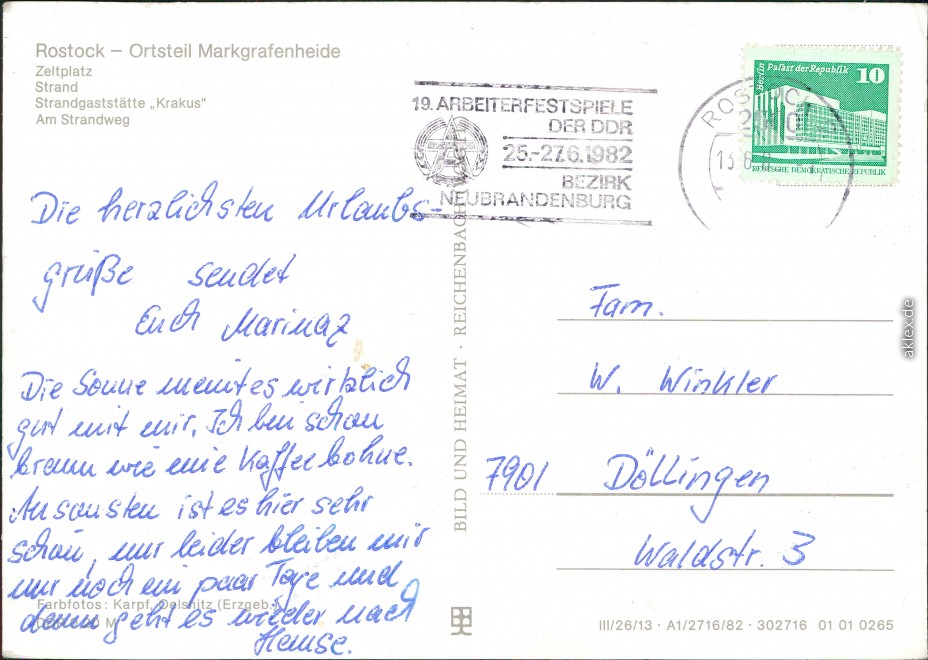 Rostock – Ortsteil Markgrafenheide
Zeltplatz
Strand
Strandgaststätte „Krakus"
Am Strandweg
19. ARBEITERFESTSPIELE
DER DDR
25.-27.6.1982
BEZIRK
NEUBRANDENBURG
ROSTOCK
Berlin Palast der Republik 10
DEUTSCHE DEMOKRATISCHE REPUBLIK
Die herzlichsten Urlaubs-
grüße sendet
Euch
Die Sonne meint es wirklich
gut mit mir. Ich bin schon
braun wie eine Kaffeebohne.
Ansonsten ist es hier sehr
schön, nur leider bleiben mir
nur noch ein paar Tage und
dann geht es wieder nach
Hause.
Farbfotos: Karpf, Oelsnitz (Erzgeb.)
BILD UND HEIMAT · REICHENBACH
Fam.
W. Winkler
7901 Döllingen
Waldstr. 3
III/26/13 · A1/2716/82 · 302716 01 01 0265
aklex.de